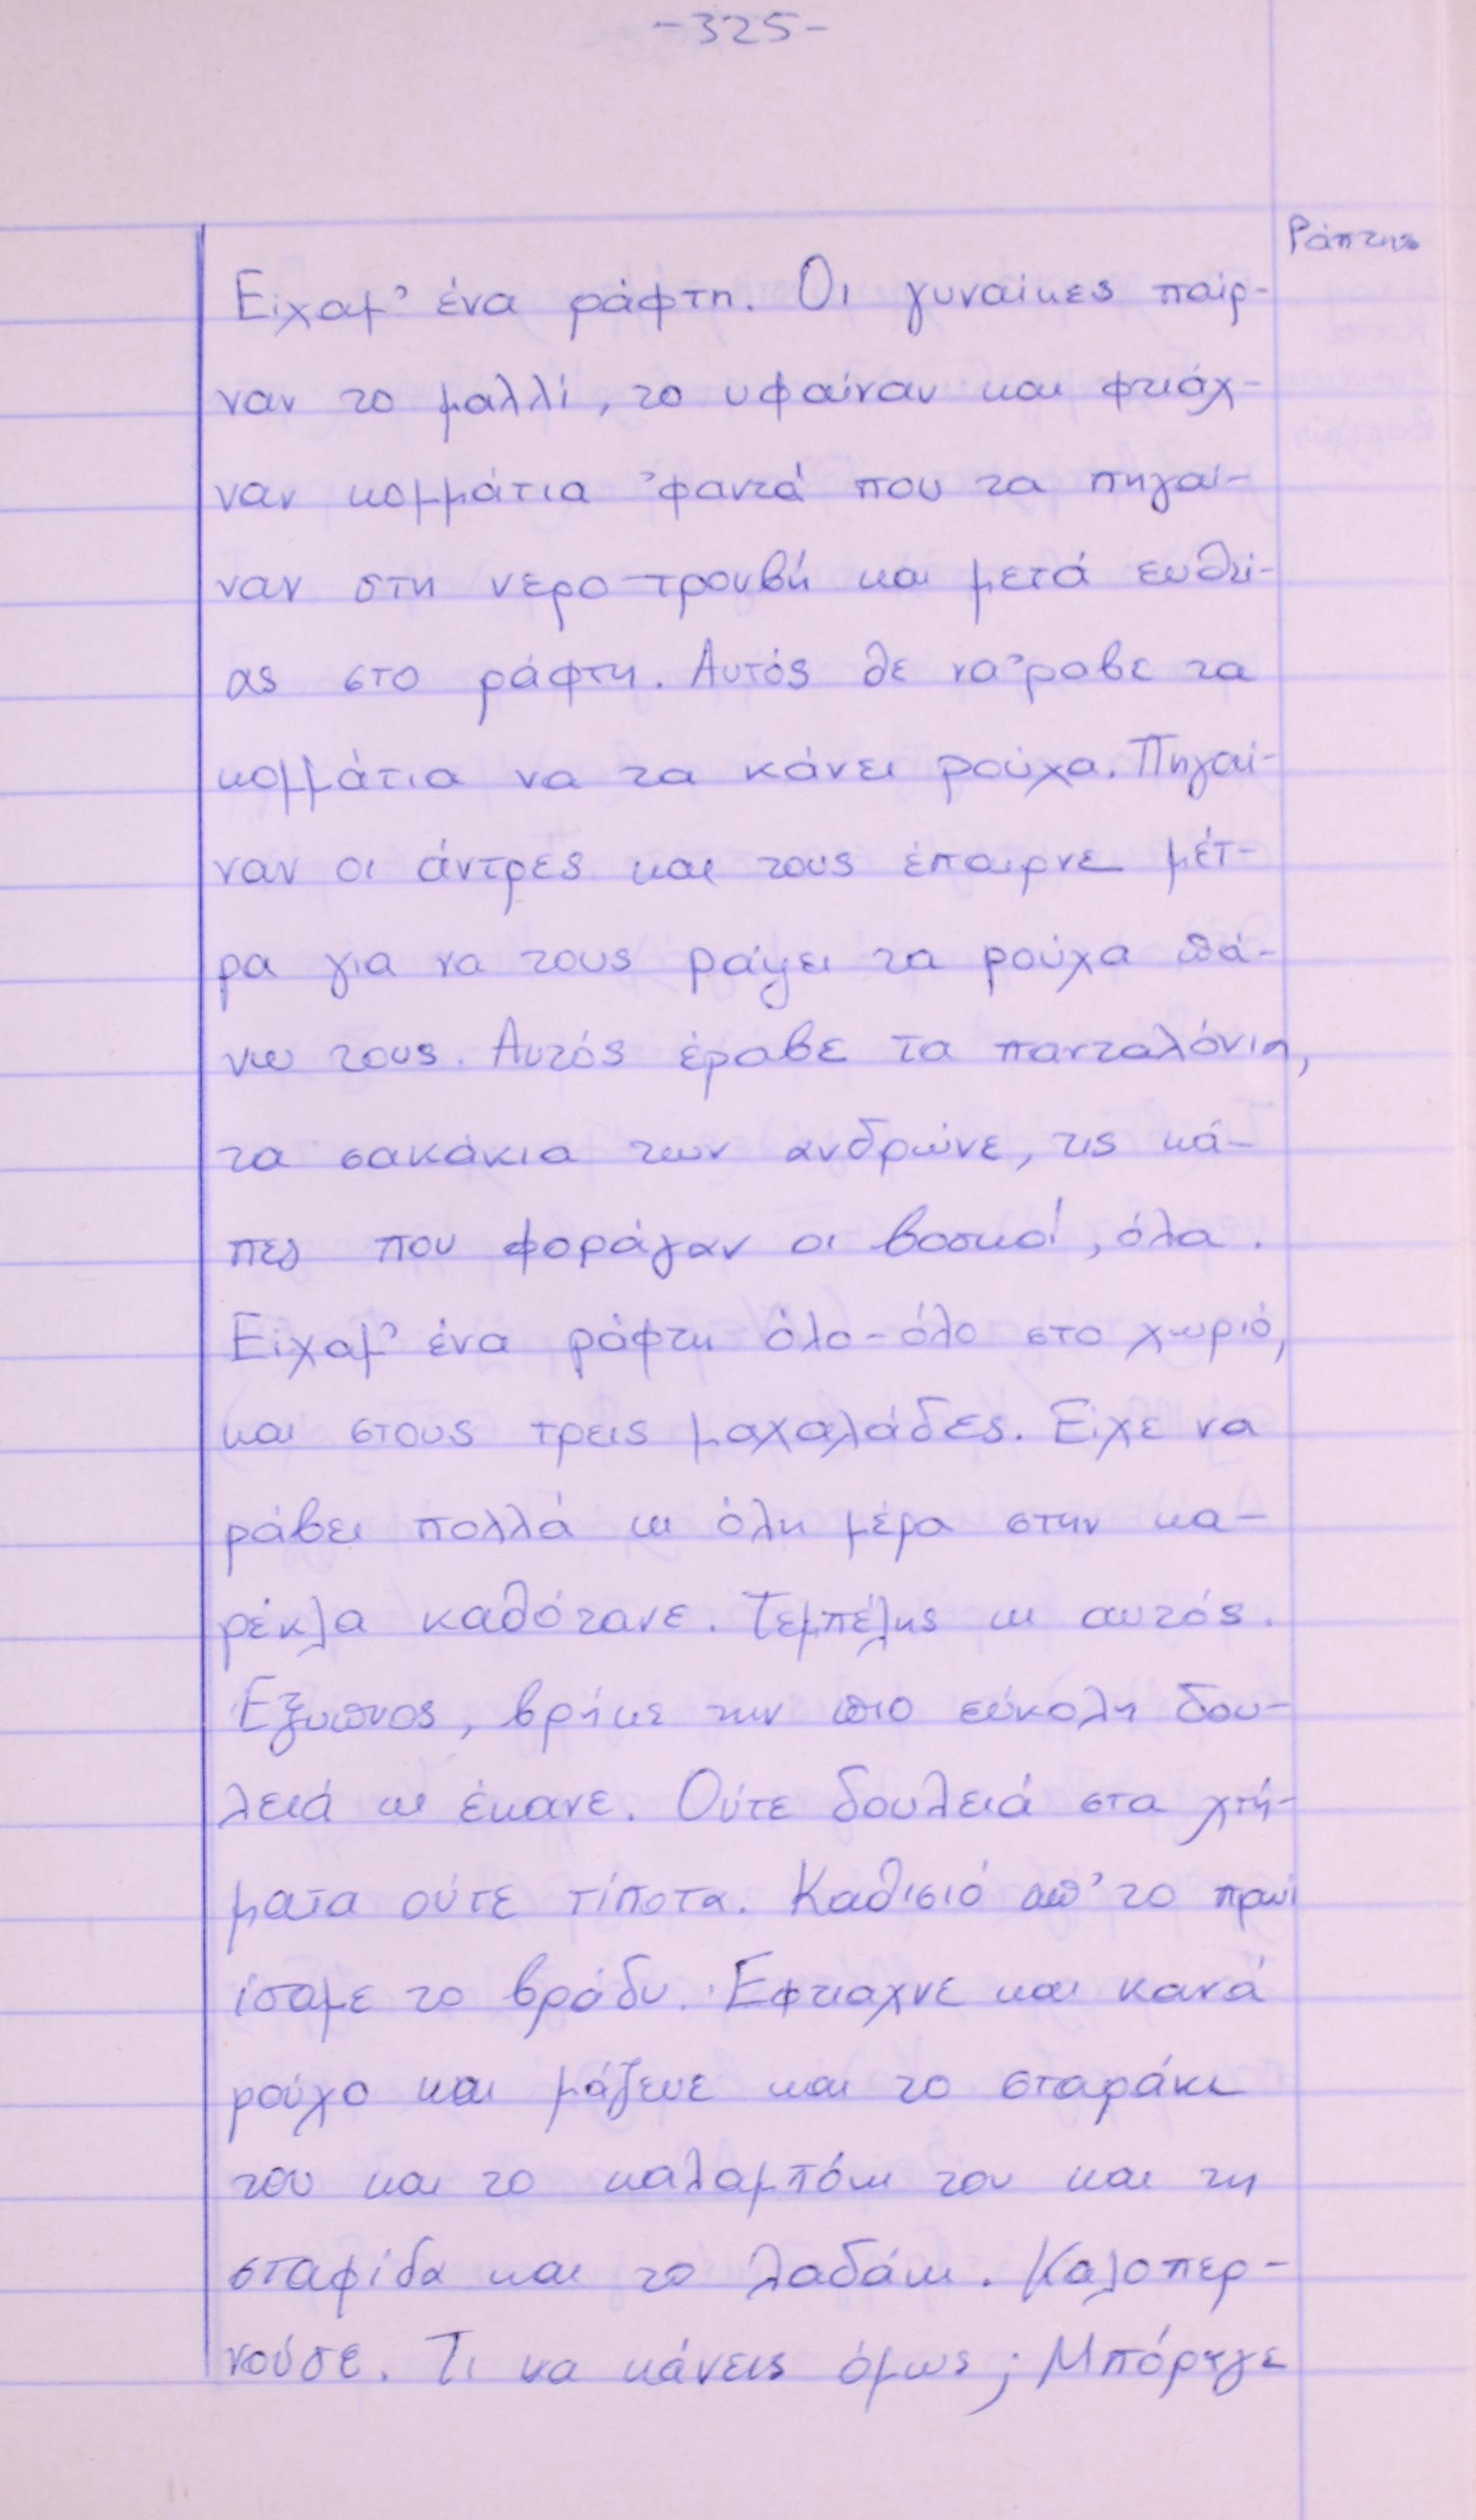 -325-
Ράπτης
Είχαμ' ένα ράφτη. Οι γυναίκες παίρ-
ναν το μαλλί, το υφαίναν και φτιάχ-
ναν κομμάτια 'φαντά που τα πηγαί-
ναν στη νερο-τρουβή και μετά ευθεί-
ας στο ράφτη. Αυτός θε να 'ραβε τα
κομμάτια να τα κάνει ρούχα. Πηγαί-
ναν οι άντρες και τους έπαιρνε μέτ-
ρα για να τους ράψει τα ρούχα πά-
νω τους. Αυτός έραβε τα πανταλόνια,
τα σακάκια των ανδρώνε, τις κά-
πες που φοράγαν οι βοσκοί, όλα.
Είχαμ' ένα ράφτη όλο-όλο στο χωριό,
και στους τρεις μαχαλάδες. Είχε να
ράβει πολλά κι όλη μέρα στην κα-
ρέκλα καθότανε. Τεμπέλης κι αυτός.
Έξυπνος, βρήκε την πιο εύκολη δου-
λειά κι έκανε. Ούτε δουλειά στα χτή-
ματα ούτε τίποτα. Καθισιό απ' το πρωί
ίσαμε το βράδυ. Έφτιαχνε και κανά
ρούχο και μάζευε και το σταράκι
του και το καλαμπόκι του και τη
σταφίδα και το λαδάκι. Καλοπερ-
νούσε. Τι να κάνεις όμως; Μπόρηγε